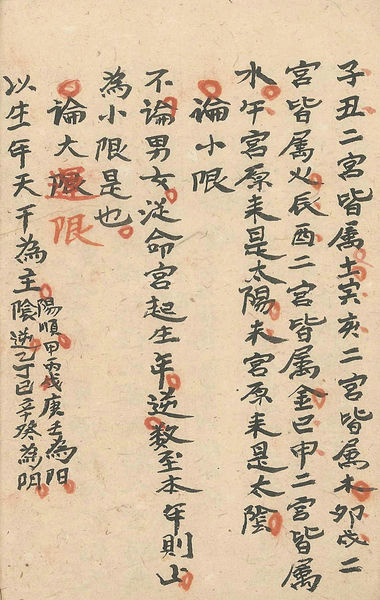 子丑二宮皆属土寅亥二宮皆属木卯戌二
宮皆属火辰酉二宮皆属金巳申二宮皆属
水午宮原来是太陽未宮原来是太陰
論小限
不論男女從命宮起生年逆数至本年則此
為小限是也
論大限
運限
以生年天干為主
陽順甲丙戊庚壬為阳
陰逆乙丁巳辛癸為阴